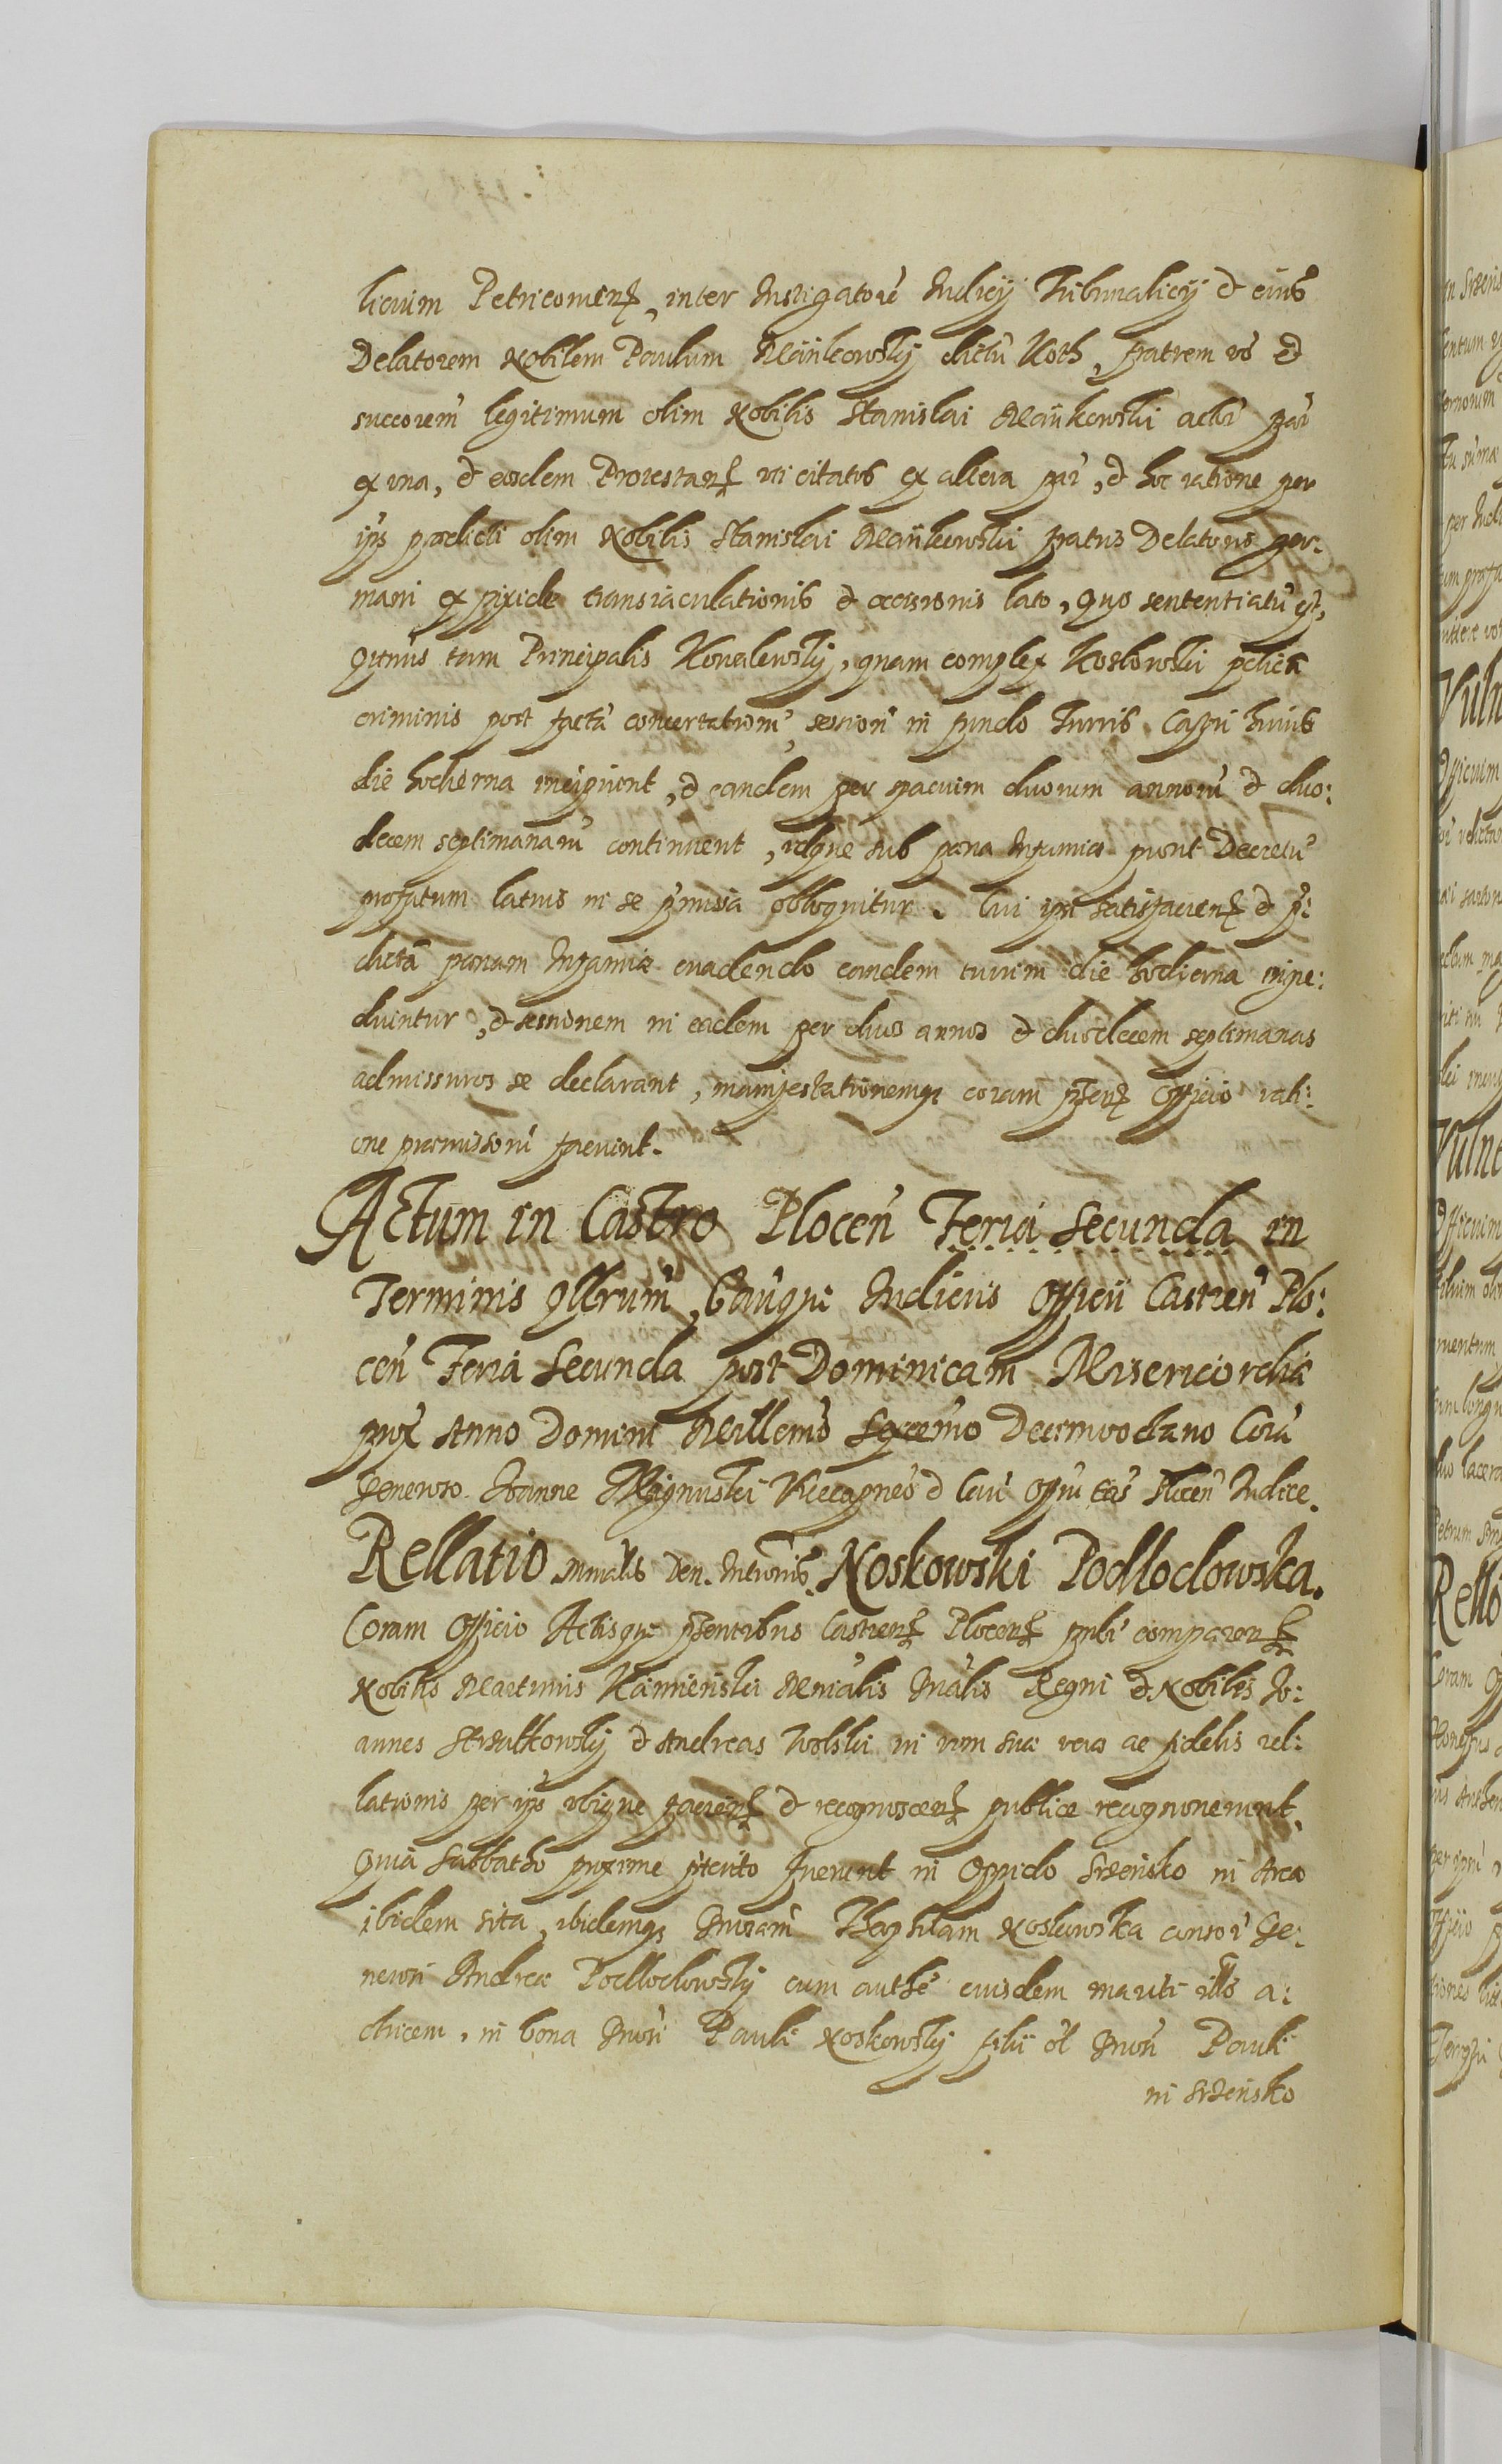 licium Petricouien, inter Instigatorẽ Iudicij Tribunalicij et eius
Delatorem Nobilem Paulum Mańkowskij dictũ Koth, fratrem et
succorem legitimum olim Nobilis Stanislai Mańkowski
ex una, et eosdem Protestan uti citatos ex altera, et hoc ratione per
ips praedicti olim Nobilis Stanislai Mańkowski fratris Delatoris ger-
mani ex pixide transiaculationis et occisionis lato, quo sententiatũ est,
tam Principalis Kowalewskij, quam complex Koslowski
criminis post factã concertationẽ, sessionẽ in fundo Turris Castri huius
die hodierna incipient, et eandem per spacium duorum annorũ et duo:
decem septimanarũ continuent, idque sub poena Infamiae prout Decretũ
profatum latius in se obloquitur. Cui ipsi satisfacien et p:
dictã poenam Infamiae euadendo eandem turrim die hodierna ingre:
diuntur, et sessionem in eadem per duos annos et duodecem septimanas
admissuros se declarant, manifestationemq coram pñten Officio rati:
one praemissorũ faciunt.
Actum in Castro Plocen̄ Feria Secunda in
Terminis Qllrum, Cauqe Iudiciis Officii Castren̄ Plo:
cen̄ Feria Secunda post Dominicam Misericordiæ
prox Anno Domini Millemo Sexcemo Decimooctauo Corã
Generoso Ioanne Magnuski Vicecapneo et Cau Offii Plocen̄ Iudice.
Rellatio Mnialis Den. Intromis. Noskowski Podlodowska.
Coram Officio Actisqe pñtentibus Castren Plocen comparen
Nobilis Martinus Kamieński Mnialis Gñalis Regni et Nobiles Io:
annes Strzałkowskij et Andreas Wolski in vim suæ veræ ac fidelis rel:
lationis per ips ubique facien et recognoscen publice recognouerunt.
Quia Sabbatho proxime pterito fuerunt in Oppido Srzeńsko in Arce
ibidem sita, ibidemq Gñosam Theophilam Noskowska consor Ge:
nerosi Andreæ Podlodowskij cum authe eiusdem mariti illo a:
ducem, in bona Gñosi Pauli Noskowskij filii ol Gñosi Pauli
in Srzeńsko